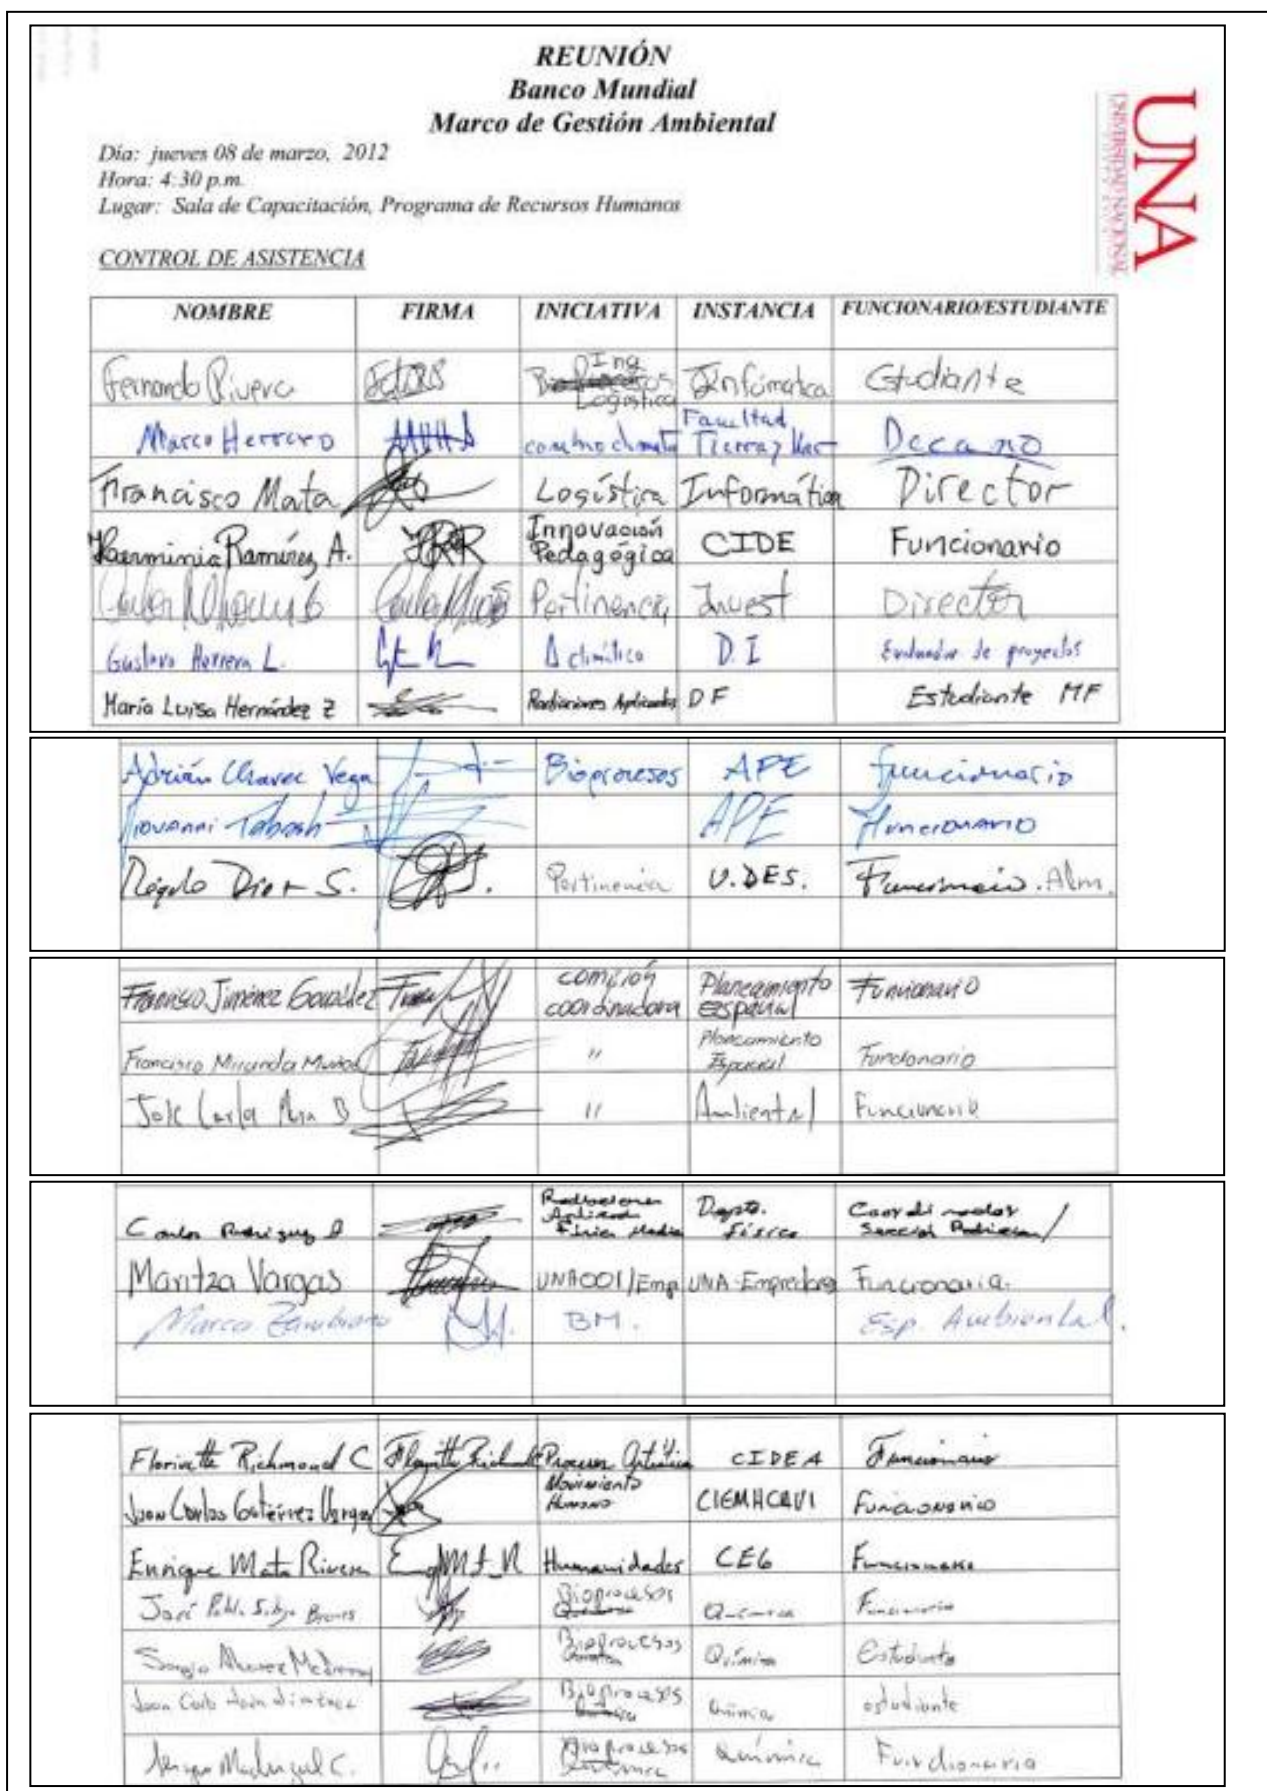 REUNIÓN
Banco Mundial
Marco de Gestión Ambiental
Día: jueves 08 de marzo, 2012
Hora: 4:30 p.m.
Lugar: Sala de Capacitación, Programa de Recursos Humanos
UNA
UNIVERSIDAD NACIONAL
CONTROL DE ASISTENCIA
NOMBRE FIRMA INICIATIVA INSTANCIA FUNCIONARIO/ESTUDIANTE
Fernando Rivera Ing Logística Informática Estudiante
Marco Herrero Facultad Tierra y Mar Decano
Francisco Mata Logística Informática Director
Herminia Ramírez A. HRR Innovación Pedagógica CIDE Funcionario
Pertinencia Invest Director
Gustavo Herrera L. Δ climático D.I Evaluador de proyectos
María Luisa Hernández Z Radiaciones Aplicadas DF Estudiante MF
Adrián Chavez Vega Bioprocesos APE funcionario
Giovanni Tabash APE Funcionario
Régulo Pertinencia U.DES. Funcionario. Alm.
Francisco Jiménez González comisión coordinadora Planeamiento espacial Funcionario
Francisco Miranda Muñoz " Planeamiento Espacial Funcionario
" Ambiental Funcionario
Carlos Rodriguez Radiaciones Aplicadas Física Médica Depto. Física Coordinador Sección
Maritza Vargas UNA001/Emp UNA-Emprendedores Funcionaria.
Marco Zambrano BM. Esp. Ambiental.
Florivette Richmond C CIDEA Funcionario
Juan Carlos Gutiérrez Vargas Movimiento Humano CIEMHCAVI Funcionario
Enrique Mata Rivera Humanidades CEG Funcionario
José Bioprocesos Química Funcionario
Sergio Bioprocesos Química Estudiante
Juan Bioprocesos Química estudiante
Madrigal C. Bioprocesos Química Funcionaria